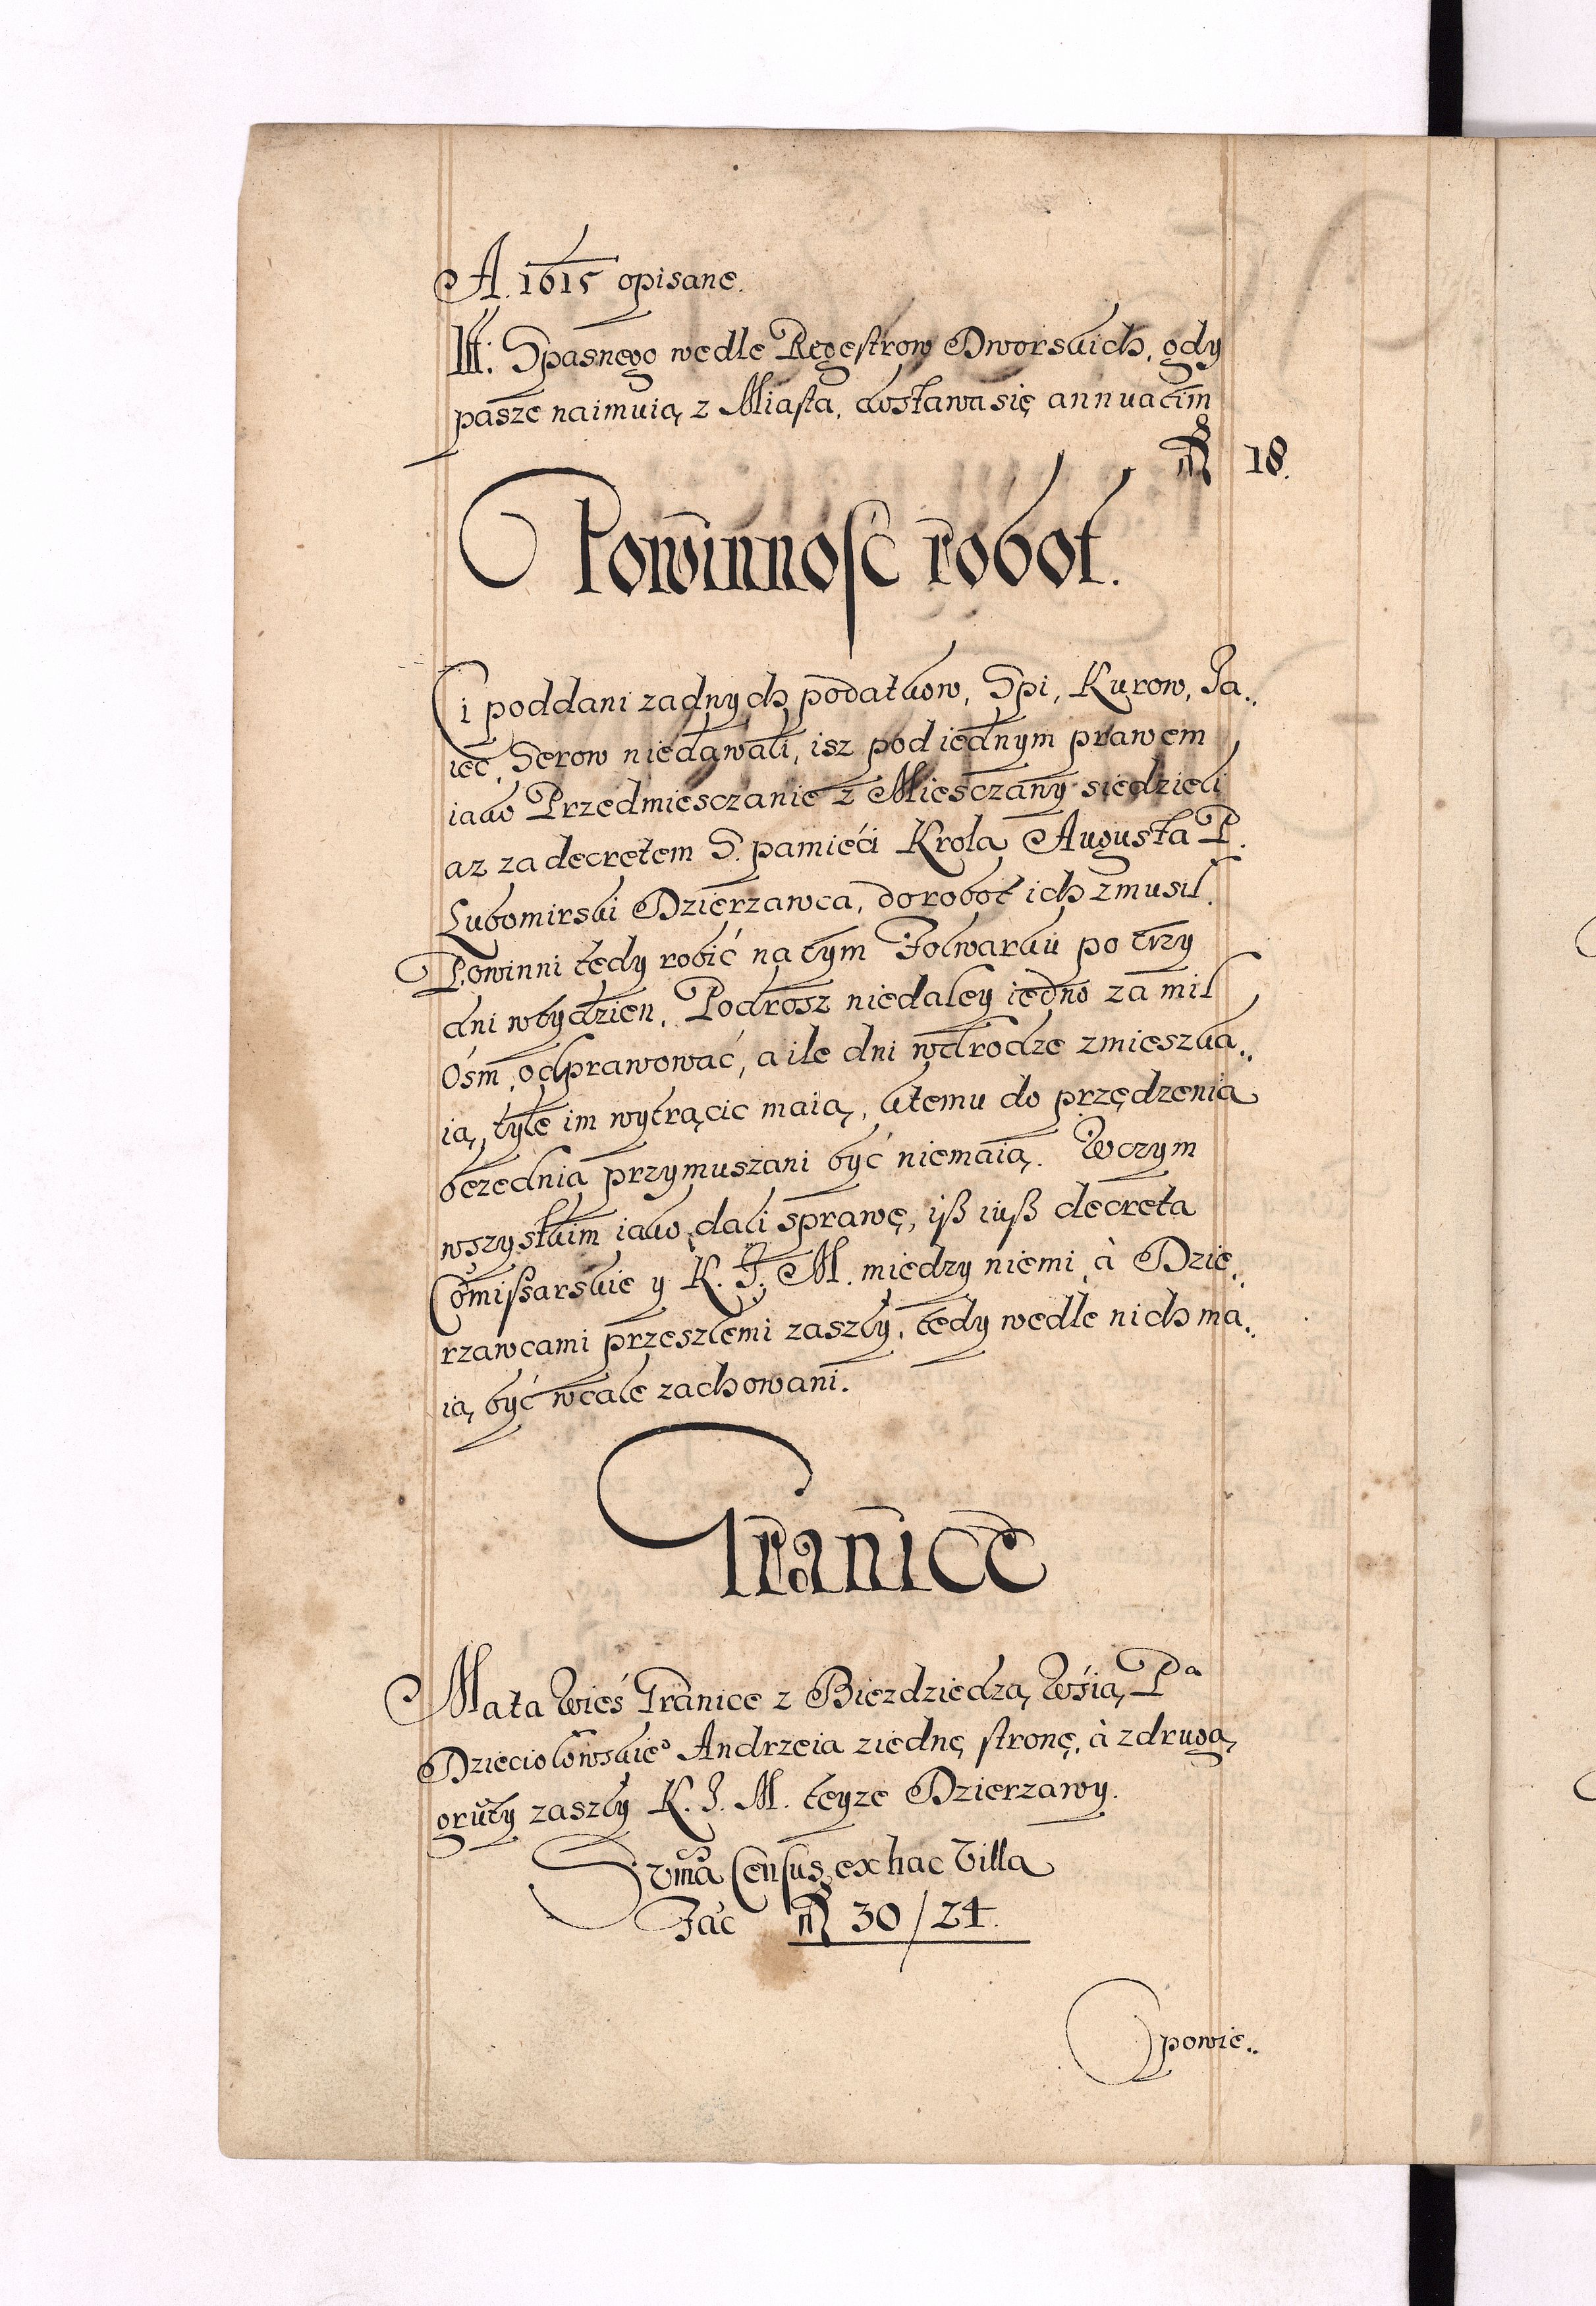 A. 1615 opisane.
It: Spasnego wedle Regestrow Dworskich, gdy
pasze naimuią z Miasta, dostawa się annuatim
fl 18.
Powinnosc robot.
Ci poddani zadnych podatkow, Spi, Kurow, Ja„
iec, Serow niedawali, isz pod iednym prawem
iako Przedmiesczanie z Miesczany siedzieli
az za decretem S. pamięći Krola Augusta P.
Lubomirski Dzierzawca, do robot ich zmusil.
Powinni tedy robić na tym Folwarku po trzy
dni wtydzien. Podrosz niedaley iedno za mil
Ośm odprawować, a ile dni wdrodze zmieszka„
ią, tyle im wytrącic maią, ktemu do przędzenia
bezednia przymuszani być niemaią. Wczym
wszystkim iako dali sprawę, iß iuß decreta
Comißarskie y K. J. M. miedzy niemi à Dzie„
rzawcami przeszlemi zaszly, tedy wedle nich ma„
ią być wcale zachowani.
Granice
Mała Wieś Granice z Biezdziedzą Wśią Pa
Dzieciolowskieo Andrzeia ziednę stronę, à zdrugą
grūty zaszly K. J. M. teyze Dzierzawy.
Suma Census ex hac Villa
Fac fl 30/24.
Opowie„